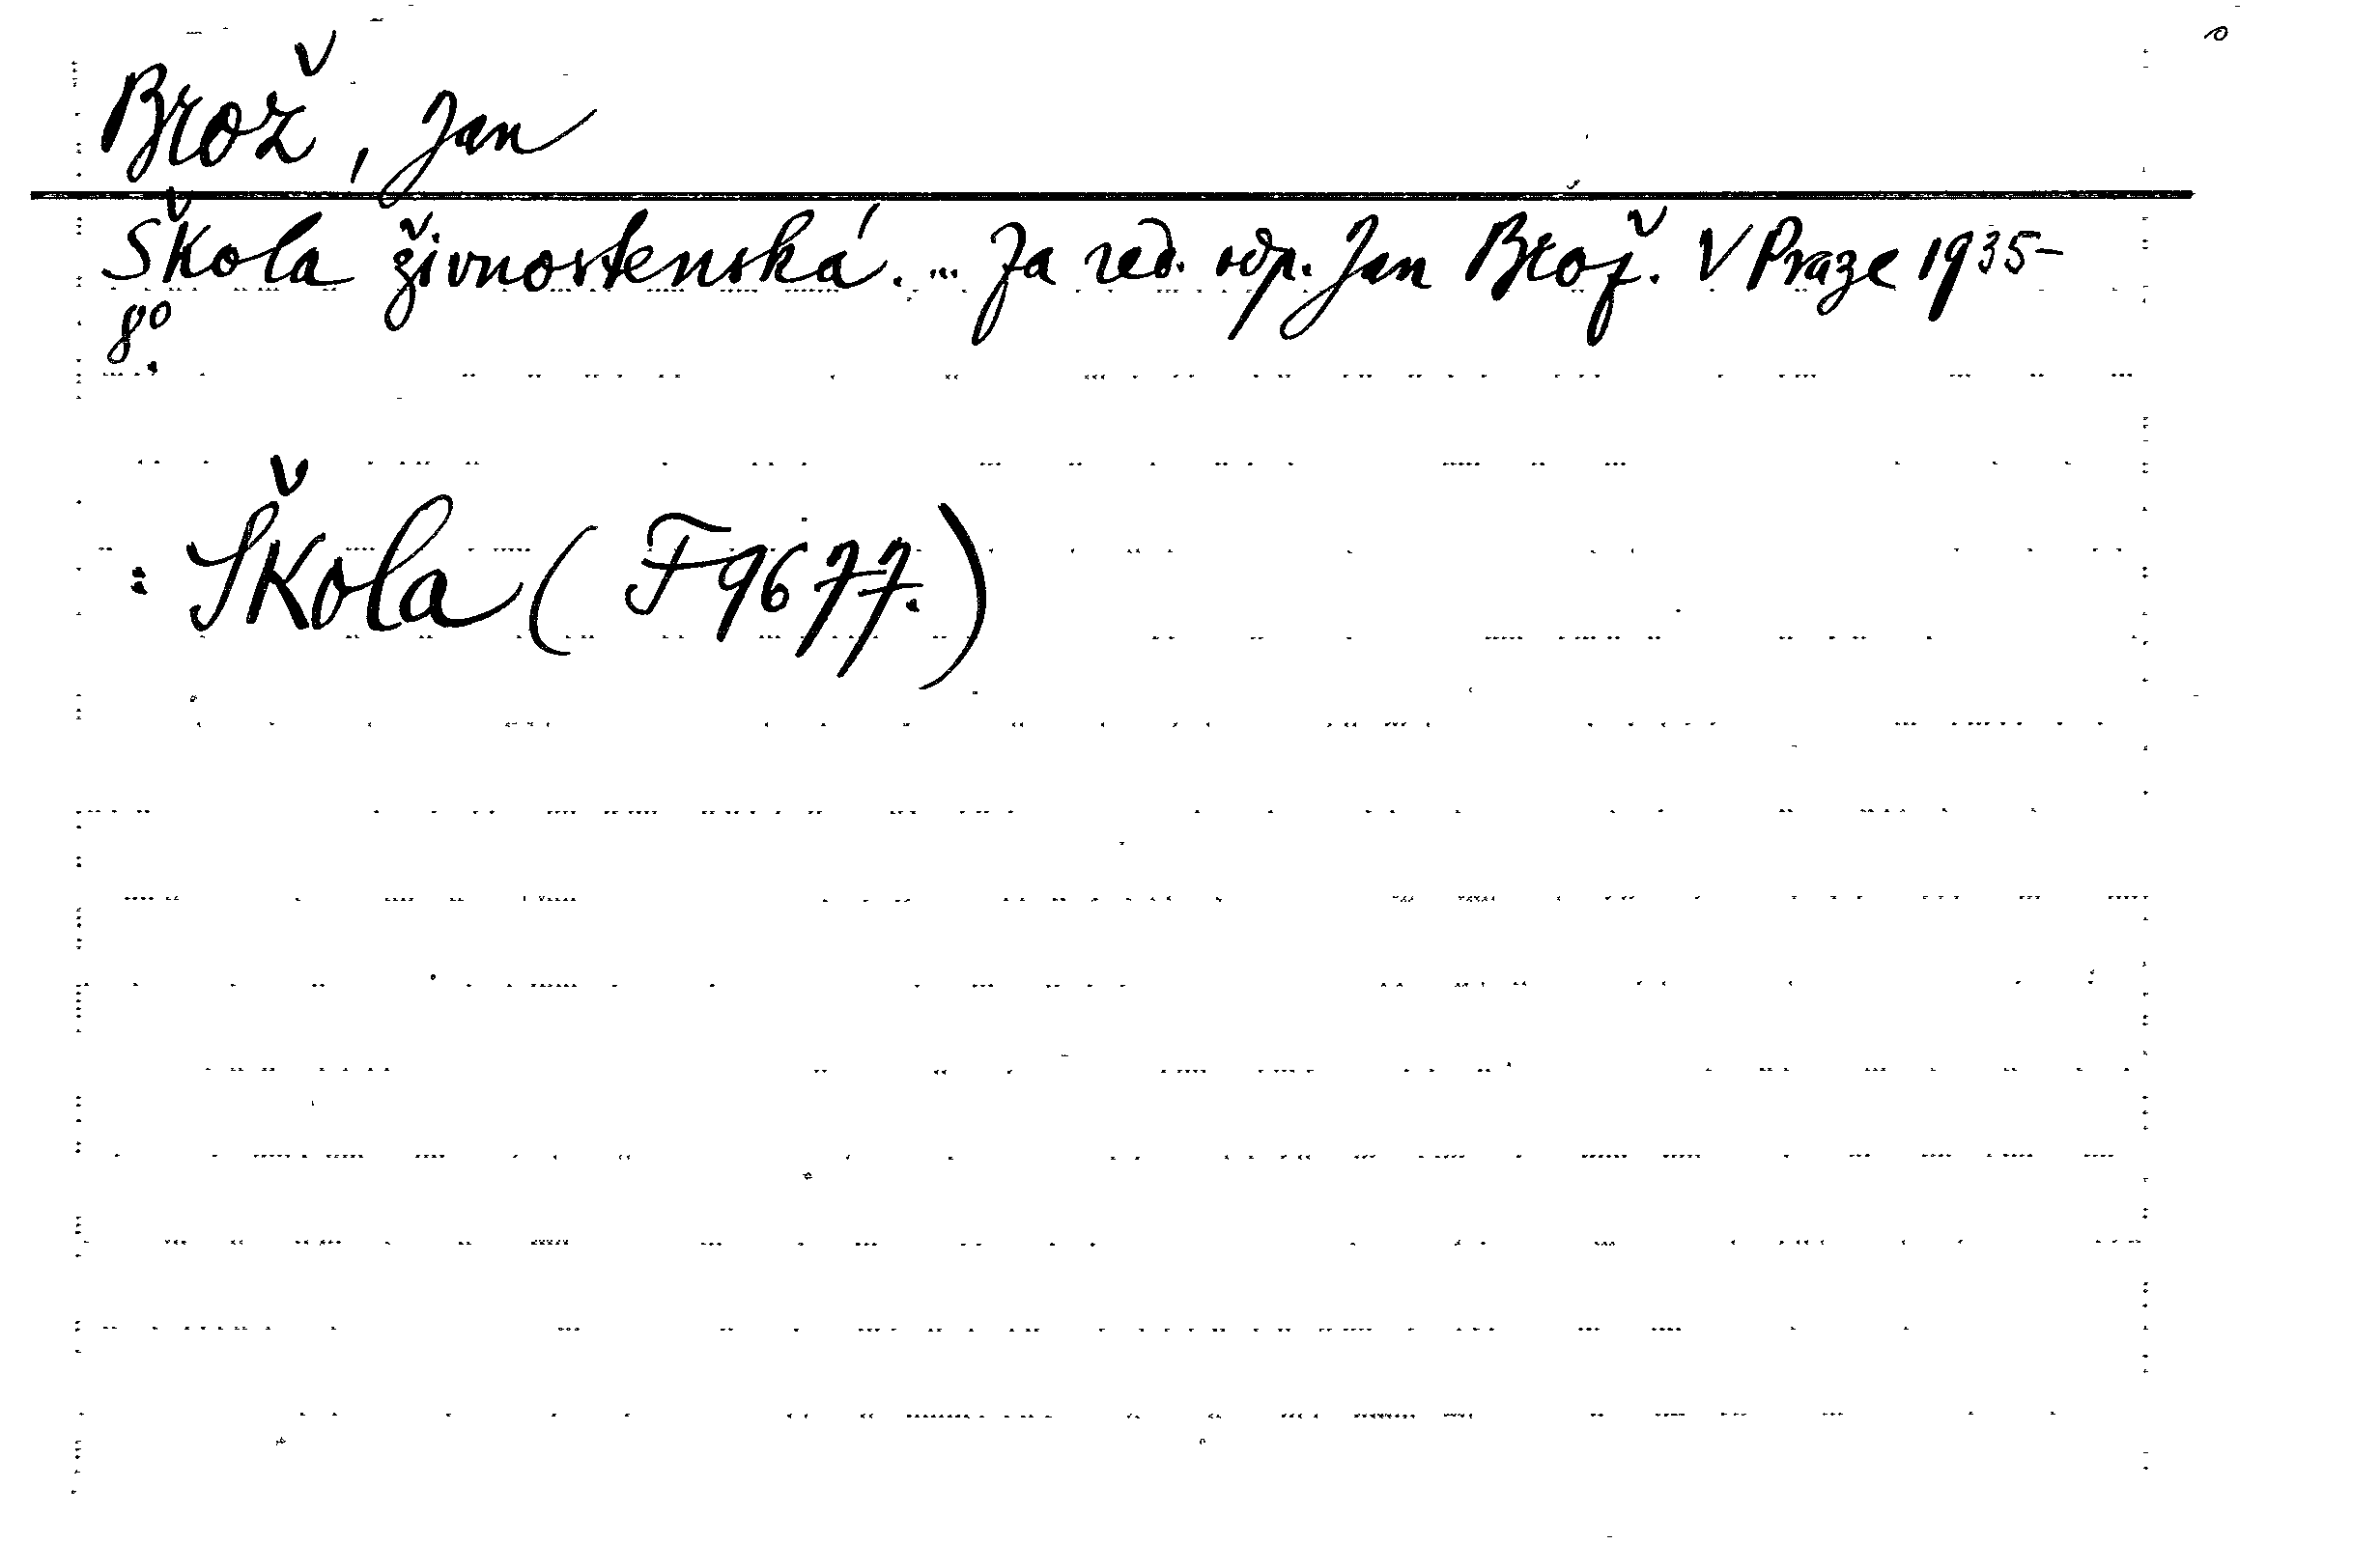 Brož, Jan
Škola živnostenská. ... Za red. odp. Jan Brož. V Praze 1935-
8°.
: Škola ( F 9677.)